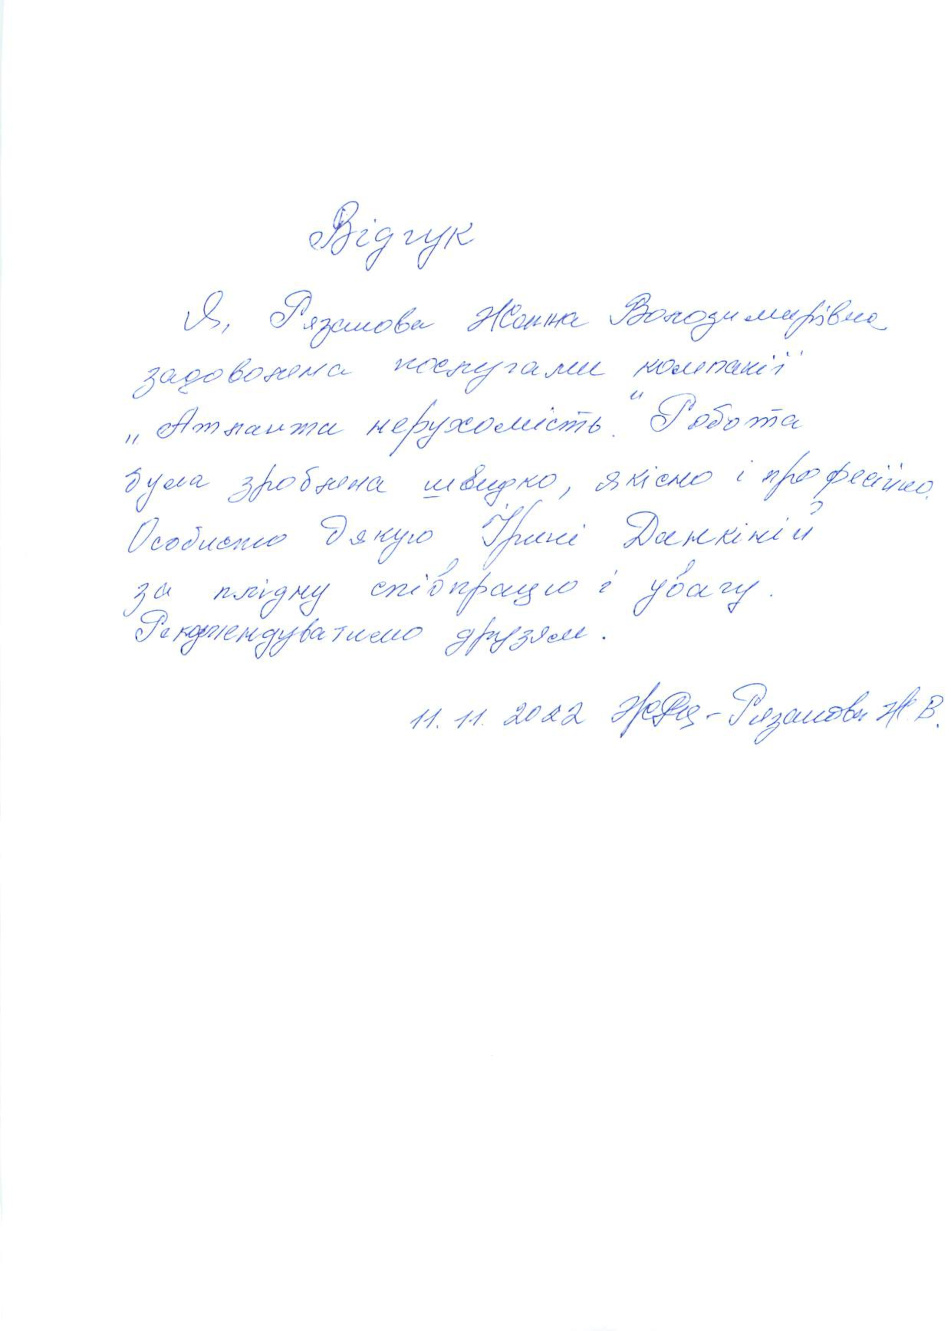 Відгук
Я, Рязанова Жанна Володимирівна
задоволена послугами компанії
„Атланта нерухомість." Робота
була зроблена швидко, якісно і професійно.
Особисто дякую Ірині Данкіній
за плідну співпрацю і увагу.
Рекомендуватимо друзям.
11.11.2022 Рязанова Ж В.